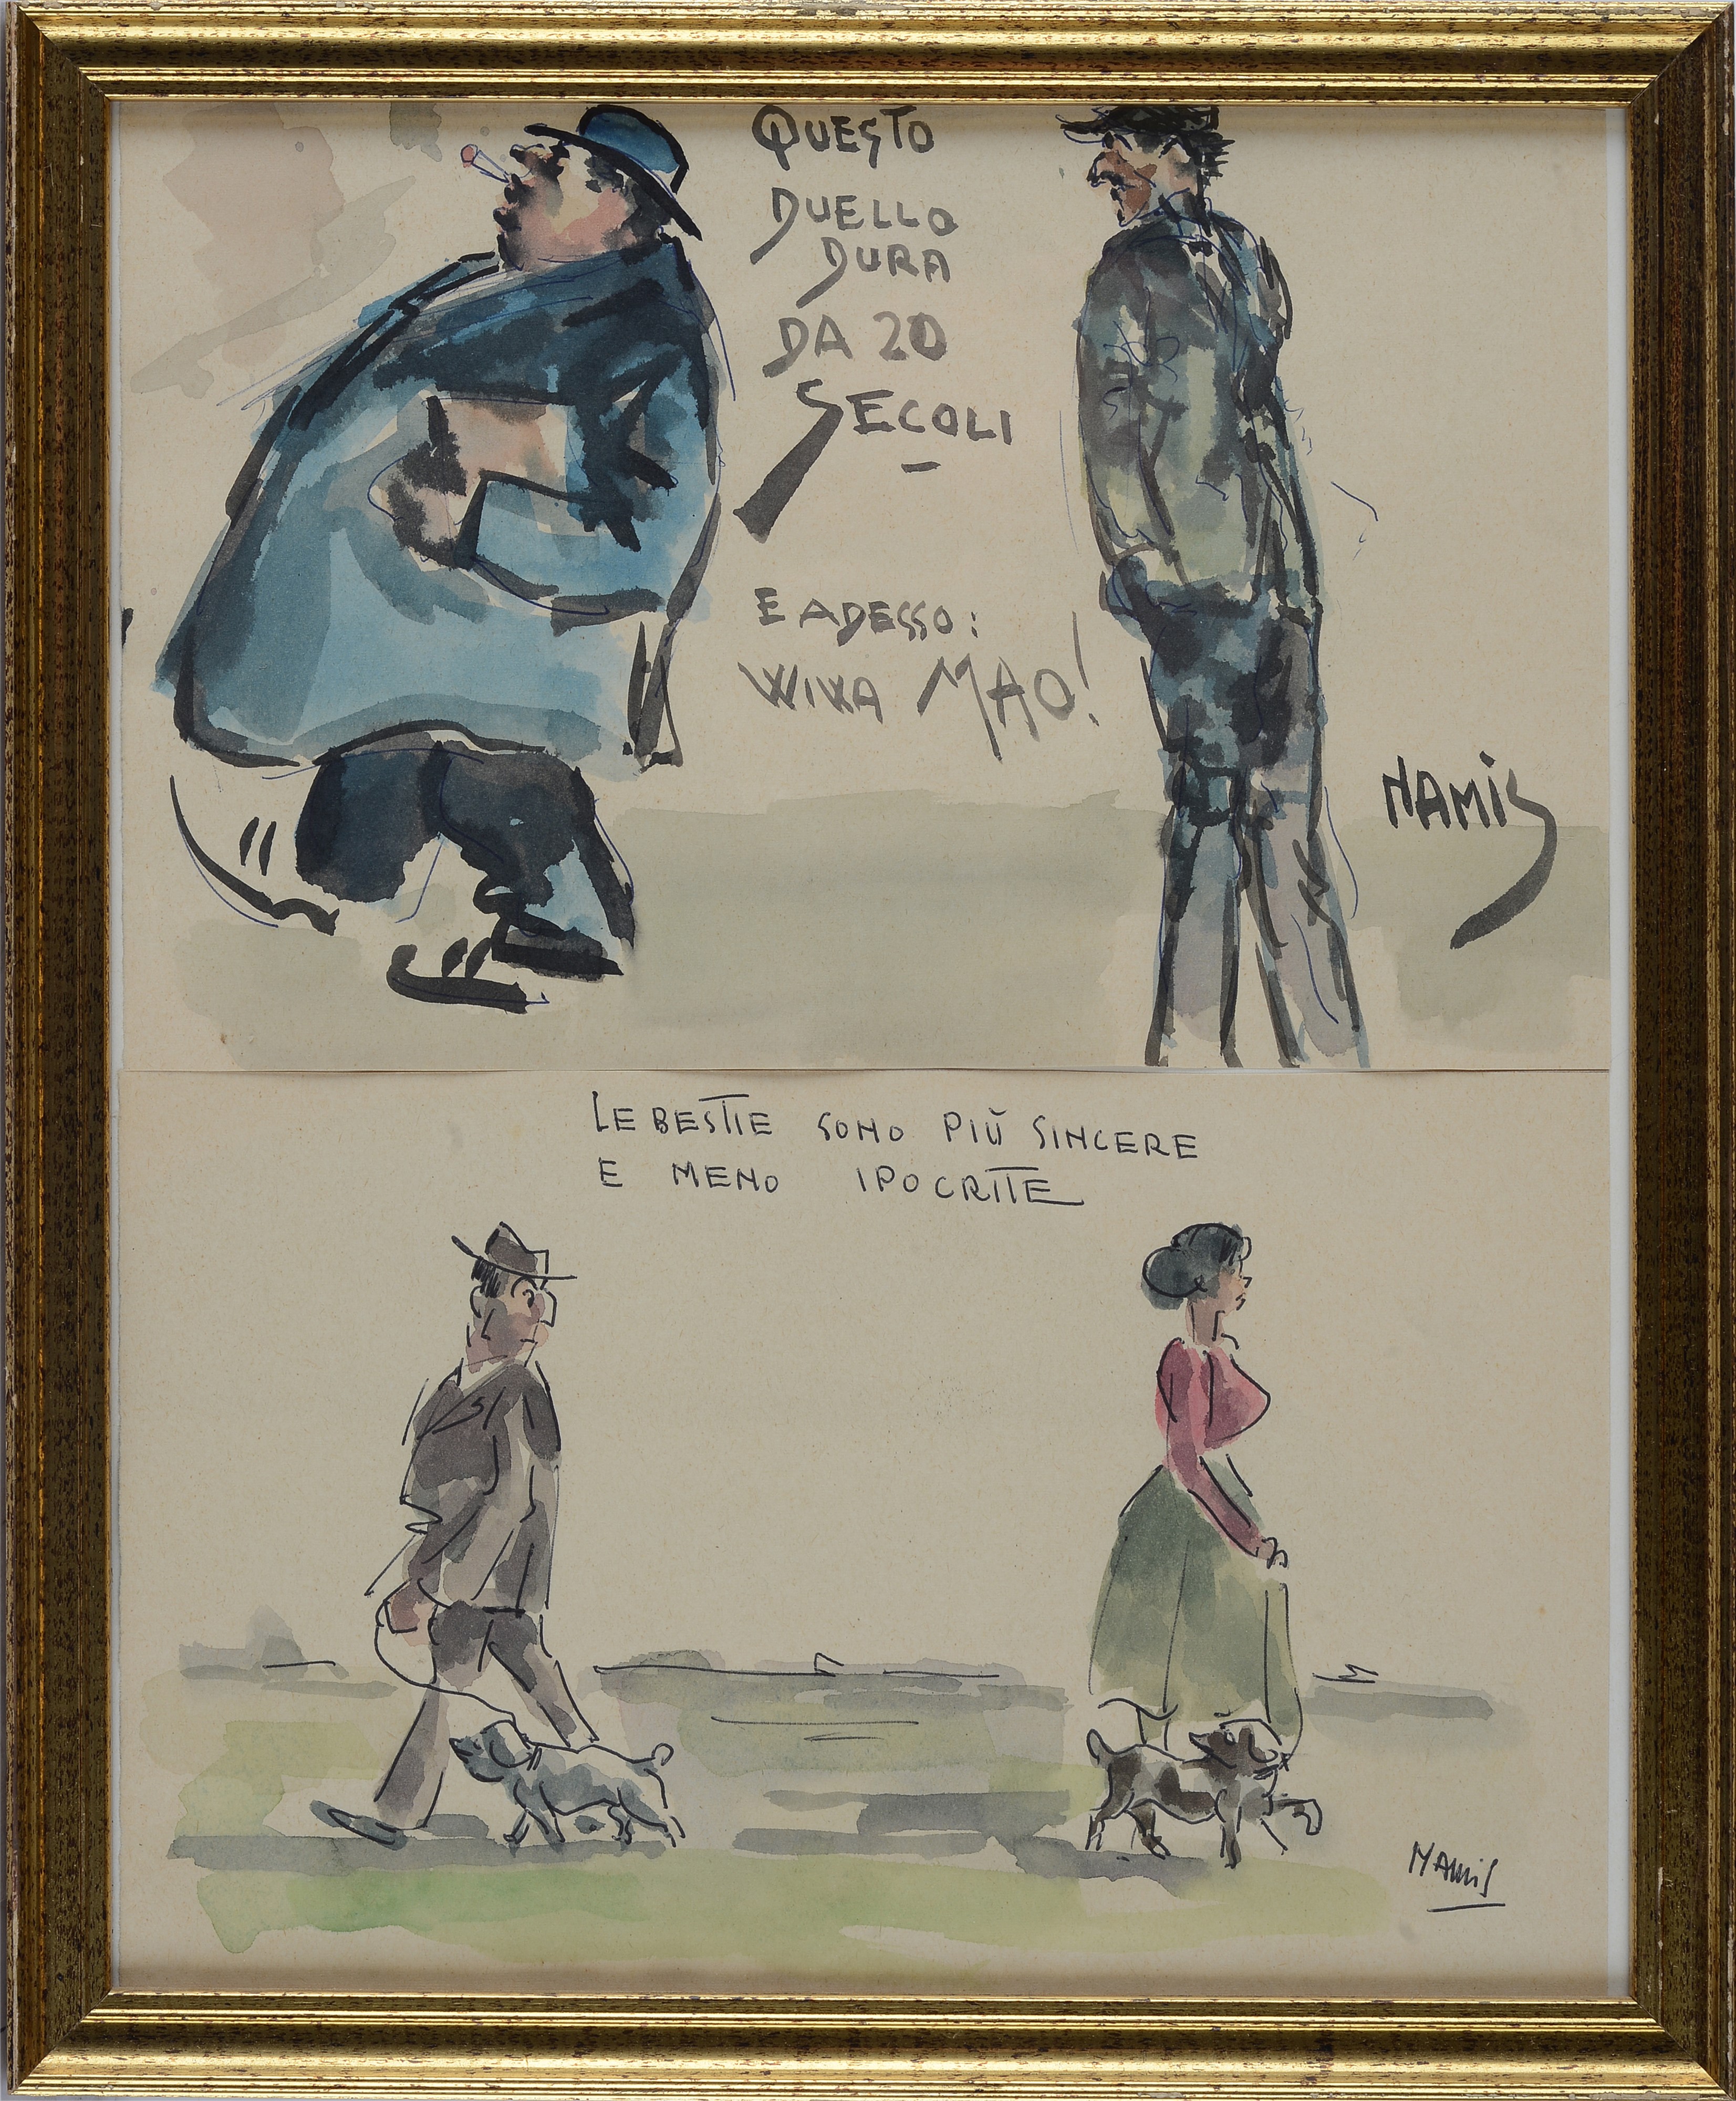 QUESTO
DUELLO
DURA
DA 20
SECOLI
E ADESSO:
WIWA MAO!
NAMIS
LE BESTIE SONO PIÙ SINCERE
E MENO IPOCRITE
NAMIS